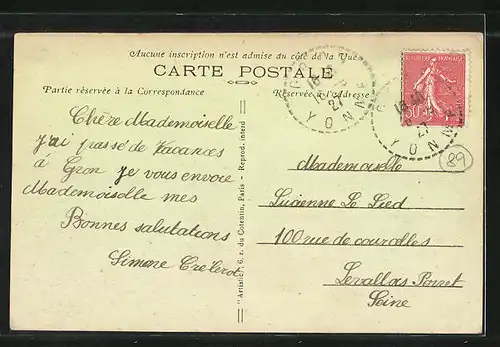 Aucune inscription n'est admise du côté de la Vue
CARTE POSTALE
Partie réservée à la Correspondance
Réservée à l'Adresse
Chère Mademoiselle
j'ai passé de vacances
à Gron je vous envoie
Mademoiselle mes
Bonnes salutations
Simone
Mademoiselle
Lucienne Le Pied
100 rue de courcelles
Levallois Perret
Seine
"Artistic", 6, r. du Cotentin, Paris - Reprod. interd
REPUBLIQUE FRANÇAISE
50
27
YONNE
27
YONNE
89